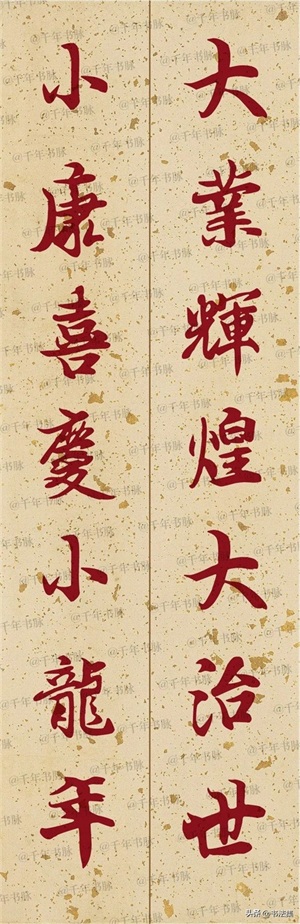 大業輝煌大治世
小康喜慶小龍年
@千年书脉
头条 @书法迷